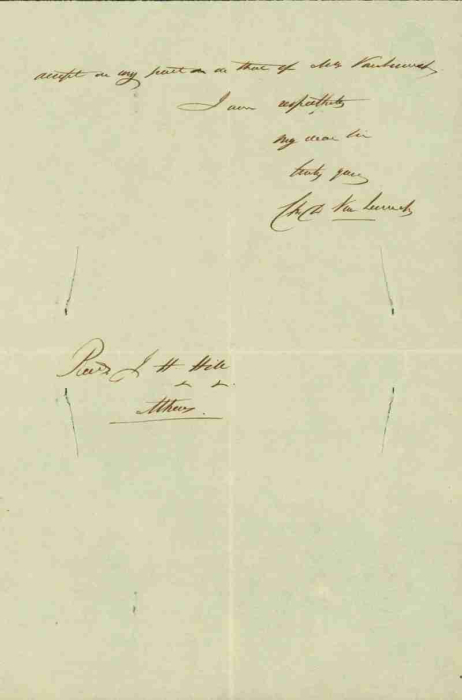 accept on my part on on that of Mrs Vanlennep.
I am respectfully
my dear Sir
truly yours
Ch D Van Lennep
Revd J H Hill
Athens.